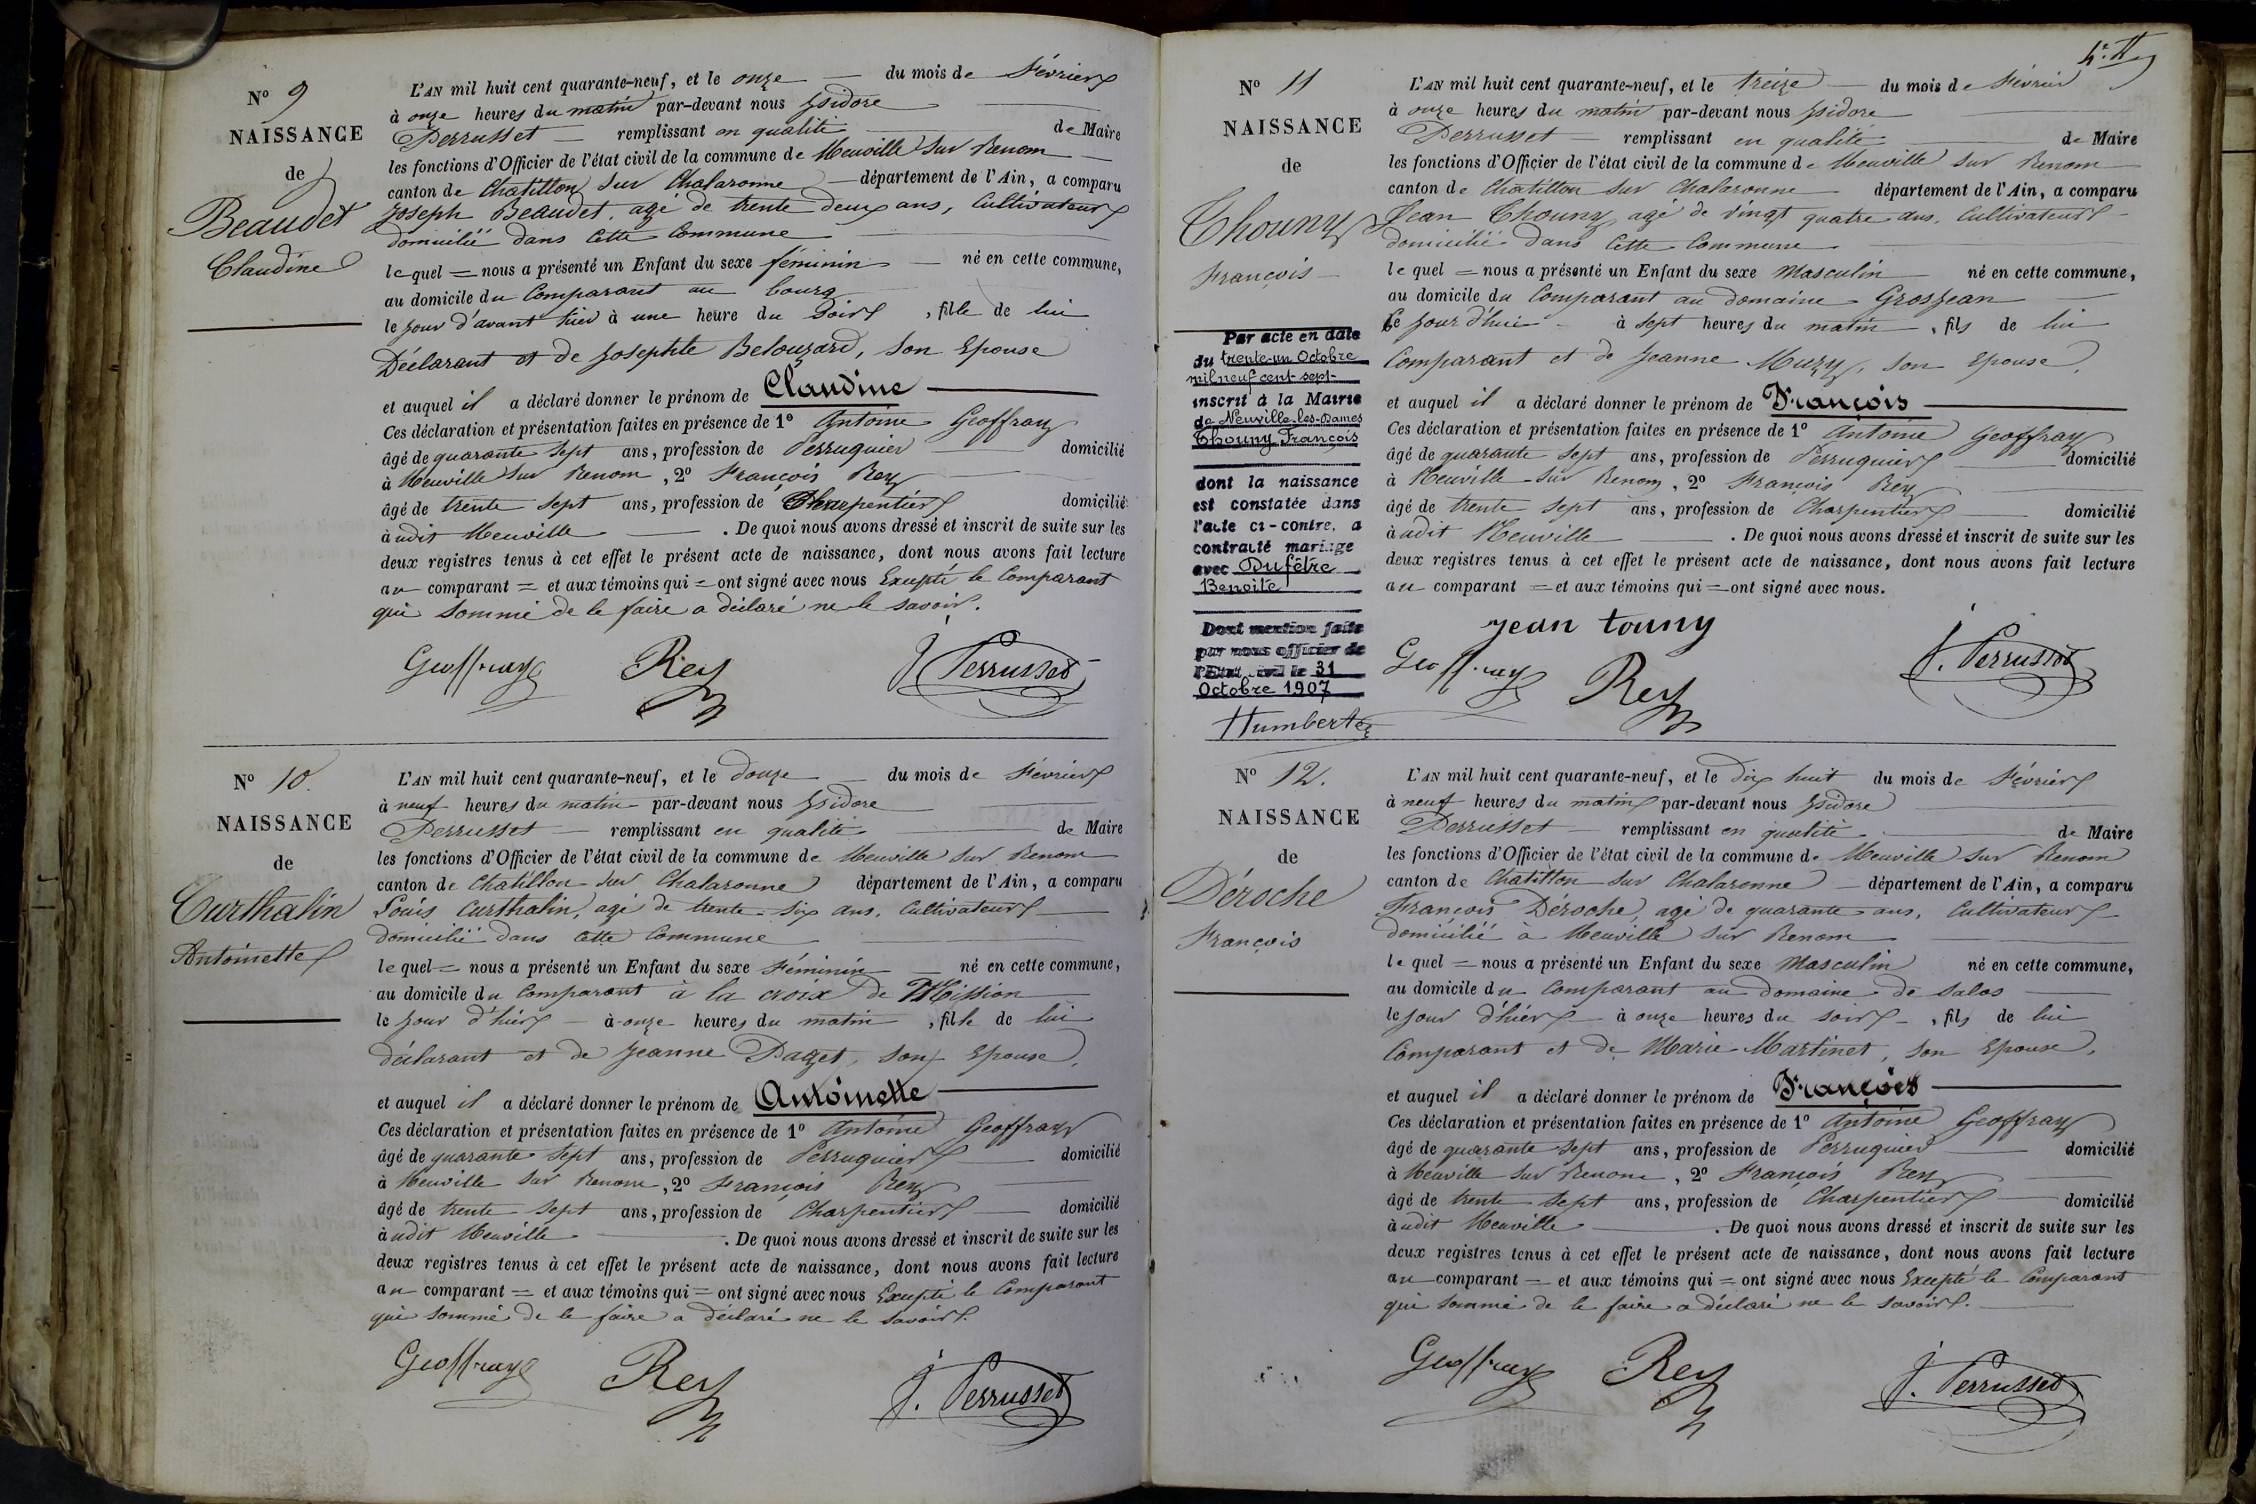 N° 9
NAISSANCE
de
Beaudet
Claudine
L'AN mil huit cent quarante-neuf, et le onze du mois de Février
à onze heures du matin par-devant nous Isidore
Perrusset remplissant en qualité de Maire
les fonctions d'Officier de l'état civil de la commune de Neuville sur Renom
canton de Chatillon sur Chalaronne département de l'Ain, a comparu
Joseph Beaudet, agé de trente deux ans, Cultivateur
domicilié dans cette Commune
lequel = nous a présenté un Enfant du sexe féminin né en cette commune,
au domicile du Comparant au bourg
le jour d'avant hier à une heure du soir, fille de lui
Déclarant et de Josephte Belouzard, son Epouse
et auquel il a déclaré donner le prénom de Claudine
Ces déclaration et présentation faites en présence de 1° Antoine Geoffray
âgé de quarante sept ans, profession de Perruquier domicilié
à Neuville sur Renom, 2° François Rey
âgé de trente sept ans, profession de Charpentier domicilié
àudit Neuville. De quoi nous avons dressé et inscrit de suite sur les
deux registres tenus à cet effet le présent acte de naissance, dont nous avons fait lecture
au comparant = et aux témoins qui = ont signé avec nous Excepté le Comparant
qui sommé de le faire a déclaré ne le savoir.
Geoffray Rey J. Perrusset
N° 10.
NAISSANCE
de
Curthalin
Antoinette
L'AN mil huit cent quarante-neuf, et le douze du mois de Février
à neuf heures du matin par-devant nous Isidore
Perrusset remplissant en qualité de Maire
les fonctions d'Officier de l'état civil de la commune de Neuville sur Renom
canton de Chatillon sur Chalaronne département de l'Ain, a comparu
Louis Curthalin, agé de trente-six ans, Cultivateur
domicilié dans cette Commune
lequel = nous a présenté un Enfant du sexe féminin né en cette commune,
au domicile du Comparant à la croix de Mission
le jour d'hier à onze heures du matin, fille de lui
déclarant et de Jeanne Paget, son Epouse,
et auquel il a déclaré donner le prénom de Antoinette
Ces déclaration et présentation faites en présence de 1° Antoine Geoffray
âgé de quarante sept ans, profession de Perruquier domicilié
à Neuville sur Renom, 2° François Rey
âgé de trente sept ans, profession de Charpentier domicilié
àudit Neuville. De quoi nous avons dressé et inscrit de suite sur les
deux registres tenus à cet effet le présent acte de naissance, dont nous avons fait lecture
au comparant = et aux témoins qui = ont signé avec nous Excepté le Comparant
qui sommé de le faire a déclaré ne le savoir.
Geoffray Rey J. Perrusset
N° 11
NAISSANCE
de
Thouny
François
Par acte en date
du trente-un Octobre
mil neuf cent sept
inscrit à la Mairie
de Neuville-les-Dames
Thouny François
dont la naissance
est constatée dans
l'acte ci-contre, a
contracté mariage
avec Dufêtre
Benoite
Dont mention faite
par nous officier de
l'Etat civil le 31
Octobre 1907
Humbert
L'AN mil huit cent quarante-neuf, et le treize du mois de Février
à onze heures du matin par-devant nous Isidore
Perrusset remplissant en qualité de Maire
les fonctions d'Officier de l'état civil de la commune de Neuville sur Renom
canton de Chatillon sur Chalaronne département de l'Ain, a comparu
Jean Thouny, agé de vingt quatre ans, Cultivateur
domicilié dans cette Commune
lequel = nous a présenté un Enfant du sexe Masculin né en cette commune,
au domicile du Comparant au domaine Grosjean
le jour d'hui à sept heures du matin, fils de lui
Comparant et de Jeanne Muzy, son Epouse,
et auquel il a déclaré donner le prénom de François
Ces déclaration et présentation faites en présence de 1° Antoine Geoffray
âgé de quarante sept ans, profession de Perruquier domicilié
à Neuville sur Renom, 2° François Rey
âgé de trente sept ans, profession de Charpentier domicilié
àudit Neuville. De quoi nous avons dressé et inscrit de suite sur les
deux registres tenus à cet effet le présent acte de naissance, dont nous avons fait lecture
au comparant = et aux témoins qui = ont signé avec nous.
jean touny
Geoffray Rey J. Perrusset
N° 12.
NAISSANCE
de
Déroche
François
L'AN mil huit cent quarante-neuf, et le dix huit du mois de Février
à neuf heures du matin par-devant nous Isidore
Perrusset remplissant en qualité de Maire
les fonctions d'Officier de l'état civil de la commune de Neuville sur Renom
canton de Chatillon sur Chalaronne département de l'Ain, a comparu
François Déroche, agé de quarante ans, Cultivateur
domicilié à Neuville sur Renom
lequel = nous a présenté un Enfant du sexe Masculin né en cette commune,
au domicile du Comparant au domaine de Salos
le jour d'hier à onze heures du soir, fils de lui
Comparant et de Marie Martinet, son Epouse,
et auquel il a déclaré donner le prénom de François
Ces déclaration et présentation faites en présence de 1° Antoine Geoffray
âgé de quarante sept ans, profession de Perruquier domicilié
à Neuville sur Renom, 2° François Rey
âgé de trente sept ans, profession de Charpentier domicilié
àudit Neuville. De quoi nous avons dressé et inscrit de suite sur les
deux registres tenus à cet effet le présent acte de naissance, dont nous avons fait lecture
au comparant = et aux témoins qui = ont signé avec nous Excepté le Comparant
qui sommé de le faire a déclaré ne le savoir.
Geoffray Rey J. Perrusset